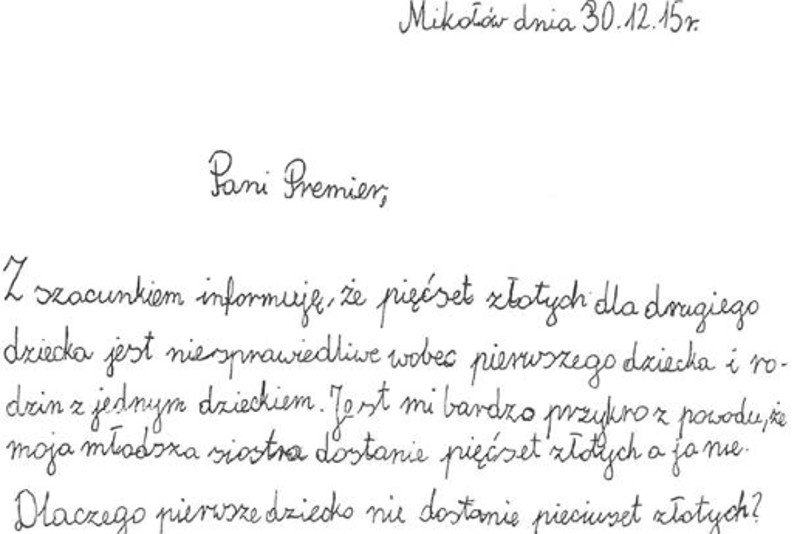 Mikołów dnia 30.12.15r.
Pani Premier,
Z szacunkiem informuję, że pięćset złotych dla drugiego
dziecka jest niesprawiedliwe wobec pierwszego dziecka i ro-
dzin z jednym dzieckiem. Jest mi bardzo przykro z powodu, że
moja młodsza siostra dostanie pięćset złotych a ja nie.
Dlaczego pierwsze dziecko nie dostanie pieciuset złotych?